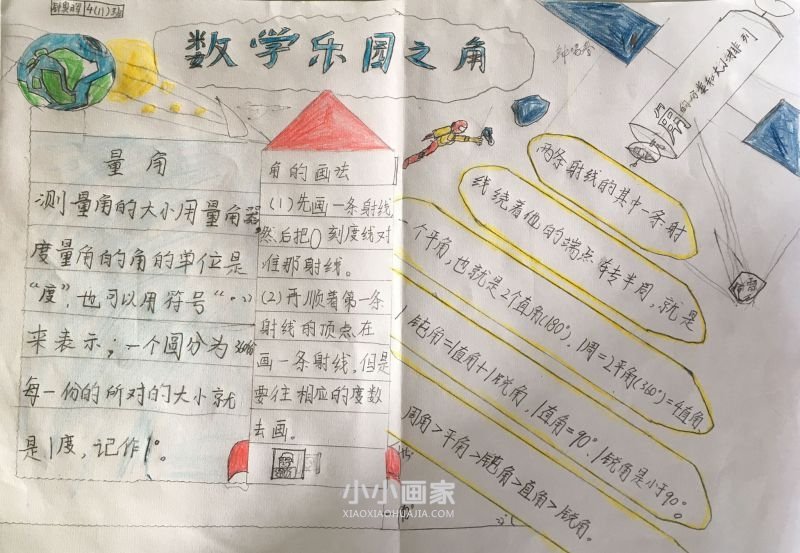 4(1)班
数学乐园之角
钟
量角
测量角的大小用量角器,
度量角的角的单位是
“度”,也可以用符号“°”
来表示;一个圆分为360份
每一份的所对的大小就
是1度,记作1°。
角的画法
(1)先画一条射线
然后把0刻度线对
准那射线。
(2)再顺着第一条
射线的顶点在
画一条射线,但是
要往相应的度数
去画。
角的分类和大小排列
两条射线的其中一条射
线绕着他的端点旋转半周,就是
一个平角,也就是2个直角(180°),1周=2平角(360°)=4直角
1钝角=1直角+1锐角,1直角=90°,1锐角是小于90°
周角>平角>钝角>直角>锐角。
小小画家
XIAOXIAOHUAJIA.COM